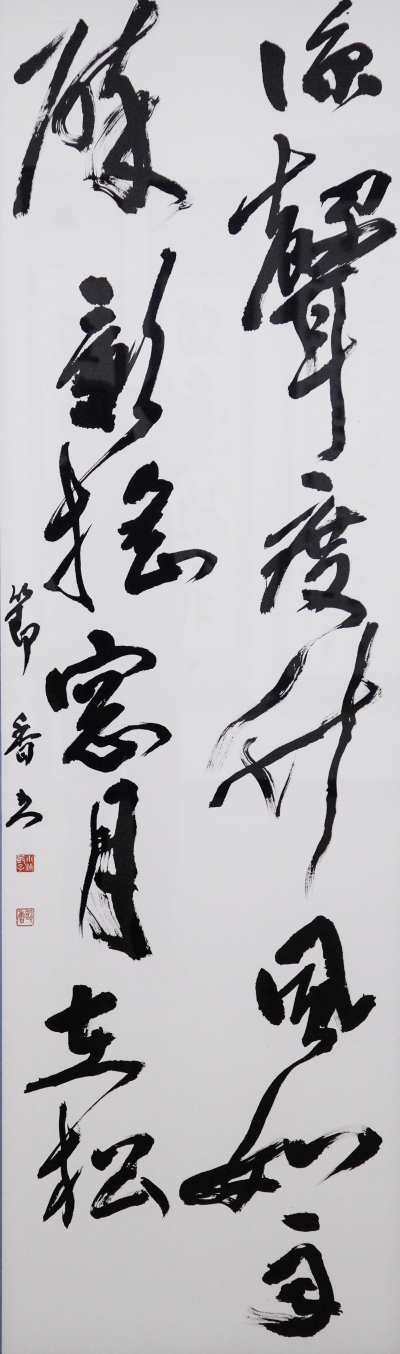 涼聲度竹風如雨
碎影搖窓月在松
節香書